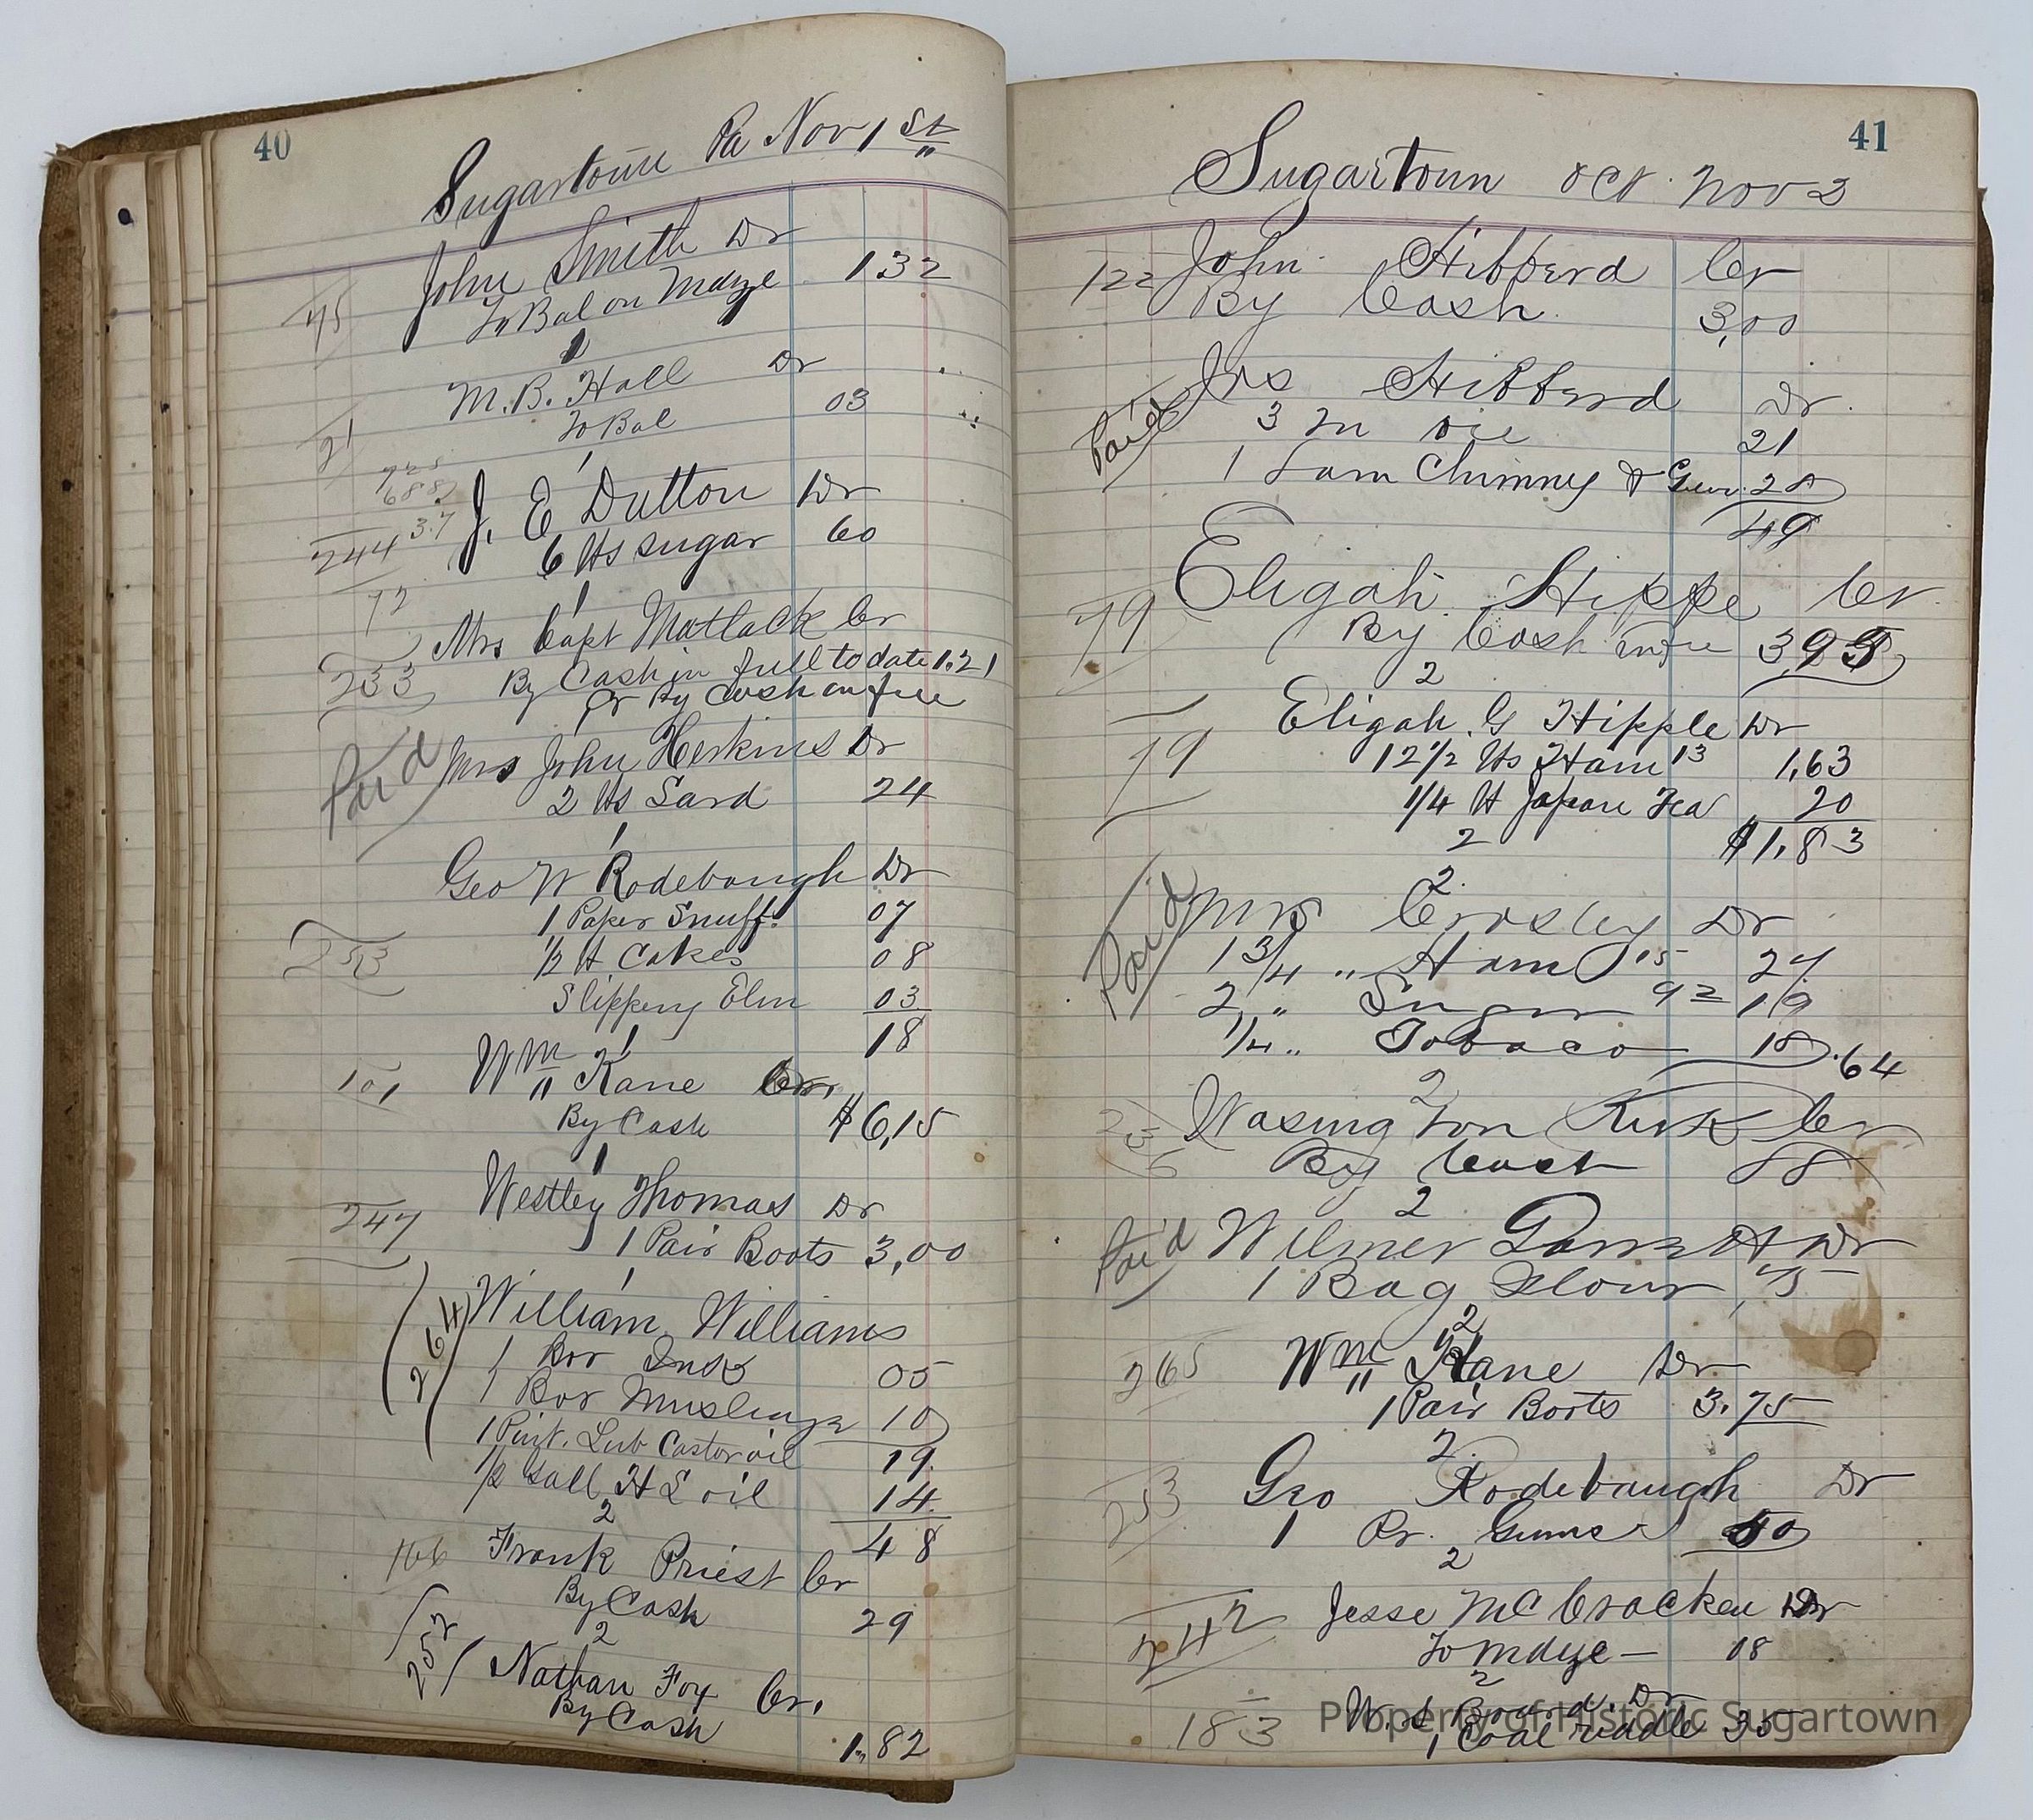 40
Sugartown Pa Nov 1st
John Smith Dr
45
To Bal on Mdze 1.32
1
M. B. Hall Dr
21
To Bal 03
1
J. E Dutton Dr
244
6 lbs sugar 60
72
1
Mrs Capt Matlack Cr
233
By Cash in full to date 1.21
Cr By Cash on
Paid
Mrs John Herkins Dr
2 lbs Lard 24
1
Geo W Rodebaugh Dr
1 Paper Snuff 07
253
1/2 lb Cakes 08
Slippery Elm 03
18
1
101
Wm Kane Cr.
By Cash $6,15
1
247
Westley Thomas Dr
1 Pair Boots 3,00
1
264
William Williams
1 Box Ink 05
1 Box 10
1 Pint. Lub Castor oil 19
1/2 Gall H L oil 14
48
2
166
Frank Priest Cr
By Cash 29
2
252
Nathan Foy Cr.
By Cash 1.82
41
Sugartown Oct. Nov 2
122
John Hibberd Cr
By Cash 3,00
Jos Hibberd Dr.
Paid
3 oil 21
1 Lam Chimney & 28
49
79
Eligah Hippe Cr
By Cash 3,95
2
Eligah. G Hipple Dr
79
12 1/2 lbs Ham 13 1,63
1/4 lb Japan Tea 20
2
$1.83
2
Paid
Mrs Crosley Dr
1 3/4 " Ham 15 27
2 " Sugar 9 1/2 19
1/4 " Tobaco 18 .64
2
236
Wasington Kirk Cr
By Cash 88
2
Paid
Wilmer Dr
1 Bag Flour 45
2
265
Wm Kane Dr
1 Pair Boots 3.75
2
253
Geo Rodebaugh Dr
1 Pr. Gums
2
242
Jesse McCracken Dr
To mdze — 18
2
183
W. S. Dr
1 Coal riddle 35
Property of Historic Sugartown